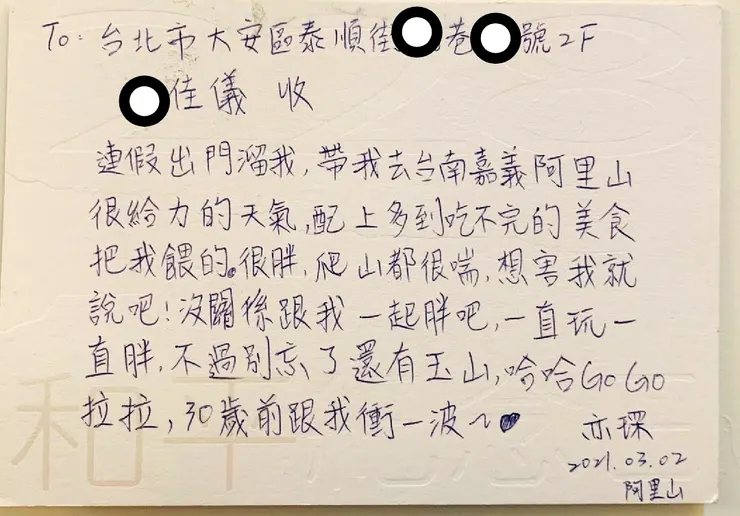 To: 台北市大安區泰順街 巷 號2F
佳儀 收
連假出門溜我,帶我去台南嘉義阿里山
很給力的天氣,配上多到吃不完的美食
把我餵的很胖,爬山都很喘,想害我就
說吧!沒關係跟我一起胖吧,一直玩一
直胖,不過別忘了還有玉山,哈哈GoGo
拉拉,30歲前跟我衝一波~♥
亦琛
2021.03.02
阿里山
和平